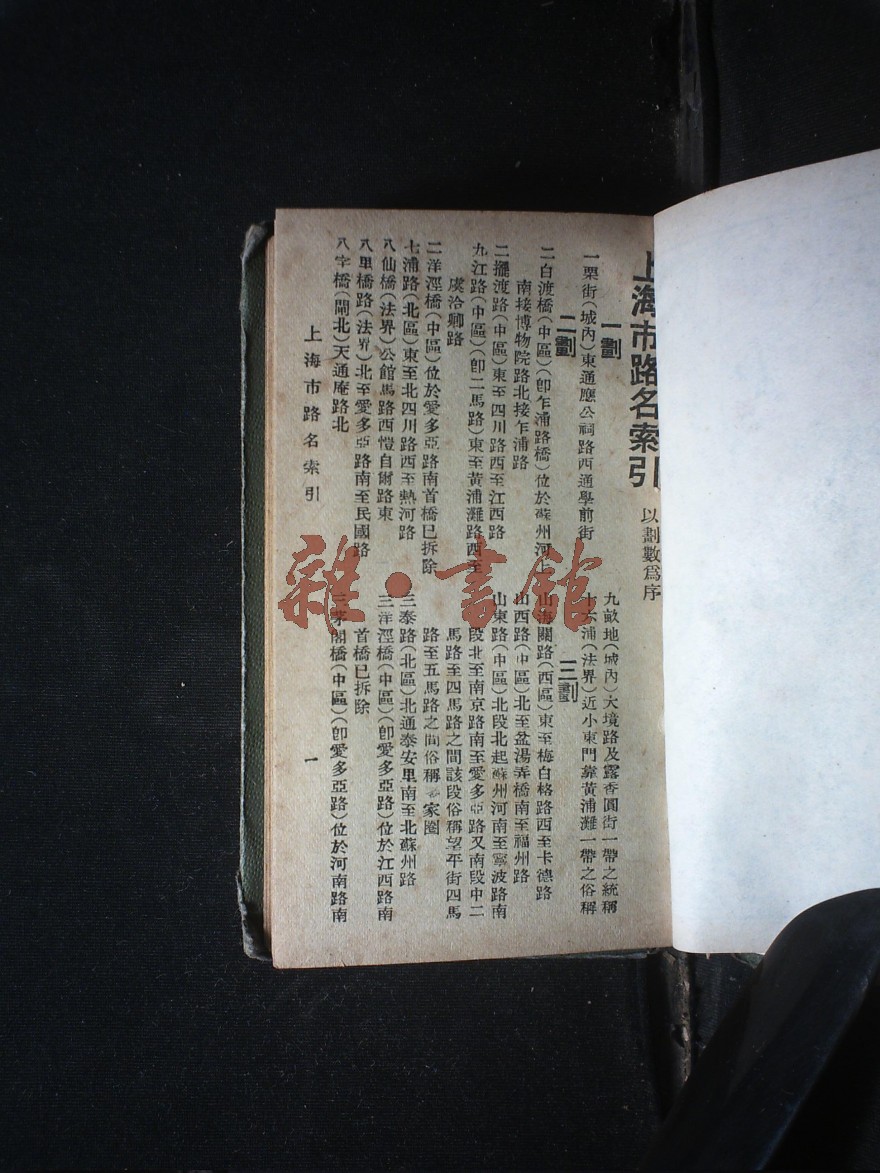 上海市路名索引
以劃數爲序
一劃
一粟街(城內)東通應公祠路西通學前街
二劃
二白渡橋(中區)(卽乍浦路橋)位於蘇州河上
南接博物院路北接乍浦路
二擺渡路(中區)東至四川路西至江西路
九江路(中區)(卽二馬路)東至黃浦灘路西至
虞洽卿路
二洋涇橋(中區)位於愛多亞路南首橋已拆除
七浦路(北區)東至北四川路西至熱河路
八仙橋(法界)公館馬路西愷自爾路東
八里橋路(法界)北至愛多亞路南至民國路
八字橋(閘北)天通庵路北
九畝地(城內)大境路及露香園街一帶之統稱
十六浦(法界)近小東門靠黃浦灘一帶之俗稱
三劃
山海關路(西區)東至梅白格路西至卡德路
山西路(中區)北至盆湯弄橋南至福州路
山東路(中區)北段北起蘇州河南至寧波路南
段北至南京路南至愛多亞路又南段中二
馬路至四馬路之間該段俗稱望平街四馬
路至五馬路之間俗稱 家圈
三泰路(北區)北通泰安里南至北蘇州路
三洋涇橋(中區)(卽愛多亞路)位於江西路南
首橋已拆除
三茅閣橋(中區)(卽愛多亞路)位於河南路南
上海市路名索引
一
雜·書館